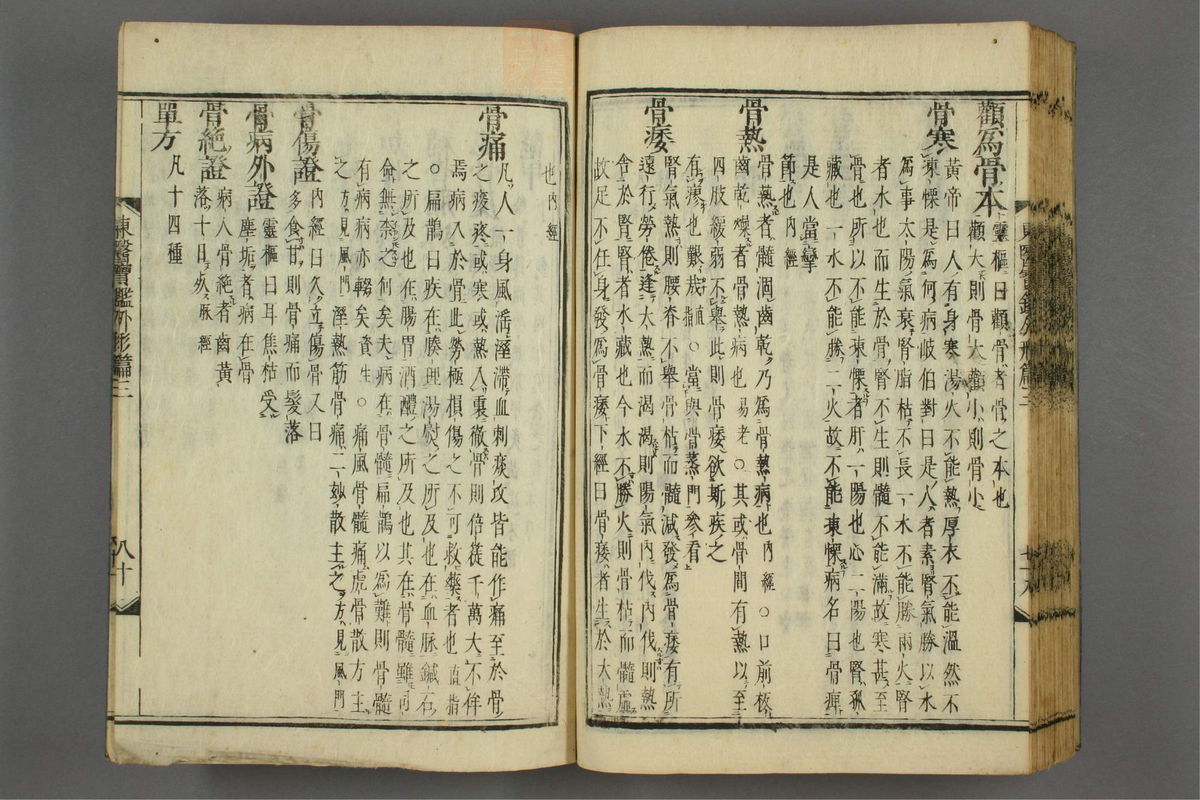 顴爲骨本靈樞曰顴骨者骨之本也
顴大則骨大顴小則骨小
骨寒黃帝曰人有身寒湯火不能熱厚衣不能溫然不
凍慄是爲何病岐伯對曰是人者素腎氣勝以水
爲事太陽氣衰腎脂枯不長一水不能勝兩火腎
者水也而生於骨腎不生則髓不能滿故寒甚至
骨也所以不能凍慄者肝一陽也心二陽也腎孤
藏也一水不能勝二火故不能凍慄病名曰骨痺
是人當攣
節也內經
骨熱骨熱者髓涸齒乾乃爲骨熱病也內經○口前
齒乾燥者骨熱病也易老○其或骨間有熱以至
四肢緩弱不擧此則骨痿欲斯疾之
在瘳也艱哉直指○當與骨蒸門參看
骨痿腎氣熱則腰脊不擧骨枯而髓減發爲骨痿有所
遠行勞倦逢大熱而渴渴則陽氣內伐內伐則熱
舍於腎腎者水藏也今水不勝火則骨枯而髓虛
故足不任身發爲骨痿下經曰骨痿者生於大熱
也內經
骨痛凡人一身風滯濕滯血刺痰攻皆能作痛至於骨
之痠疼或寒或熱入裏徹骨則倍蓰千萬大不侔
焉病入於骨此勞極損傷之不可救藥者也直指
○扁鵲曰疾在腠理湯熨之所及也在血脉鍼石
之所及也在腸胃酒醴之所及也其在骨髓雖司
命無柰之何矣夫病在骨髓扁鵲以爲難則骨髓
有病病亦轇矣資生○痛風骨髓痛虎骨散方主
之方見風門濕熱筋骨痛二妙散主之方見風門
骨傷證內經曰久立傷骨又曰
多食甘則骨痛而髮落
骨病外證靈樞曰耳焦枯受
塵垢者病在骨
骨絶證病人骨絶者齒黃
落十日死脉經
單方凡十四種
東醫寶鑑外形篇三
七十九
東醫寶鑑外形篇三
八十